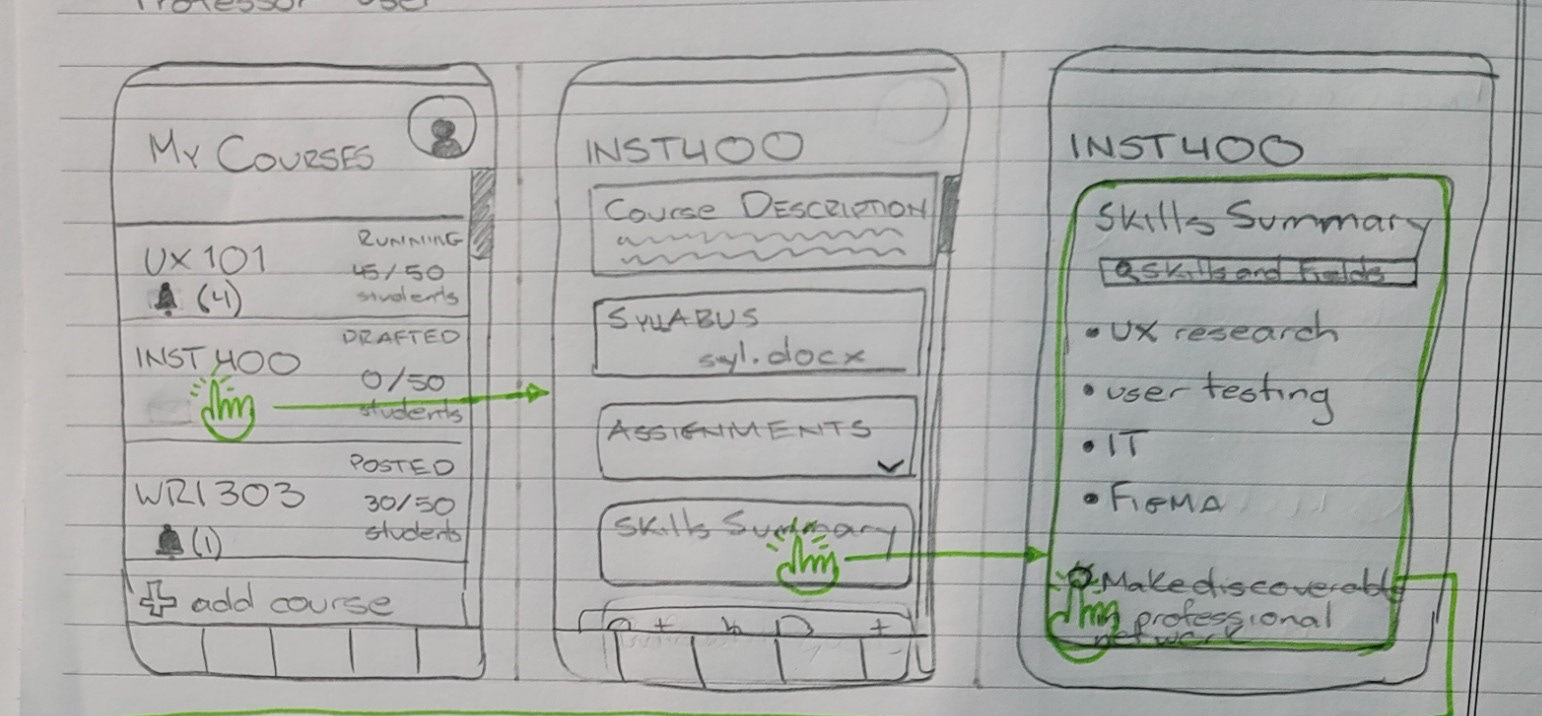 Professor User
My Courses
UX 101
RUNNING
45/50
students
(4)
INST 400
DRAFTED
0/50
students
WRI 303
POSTED
30/50
students
(1)
add course
INST400
Course Description
Syllabus
syl.docx
Assignments
Skills Summary
INST400
Skills Summary
Skills and Fields
• UX research
• user testing
• IT
• Figma
Make discoverable
professional
network